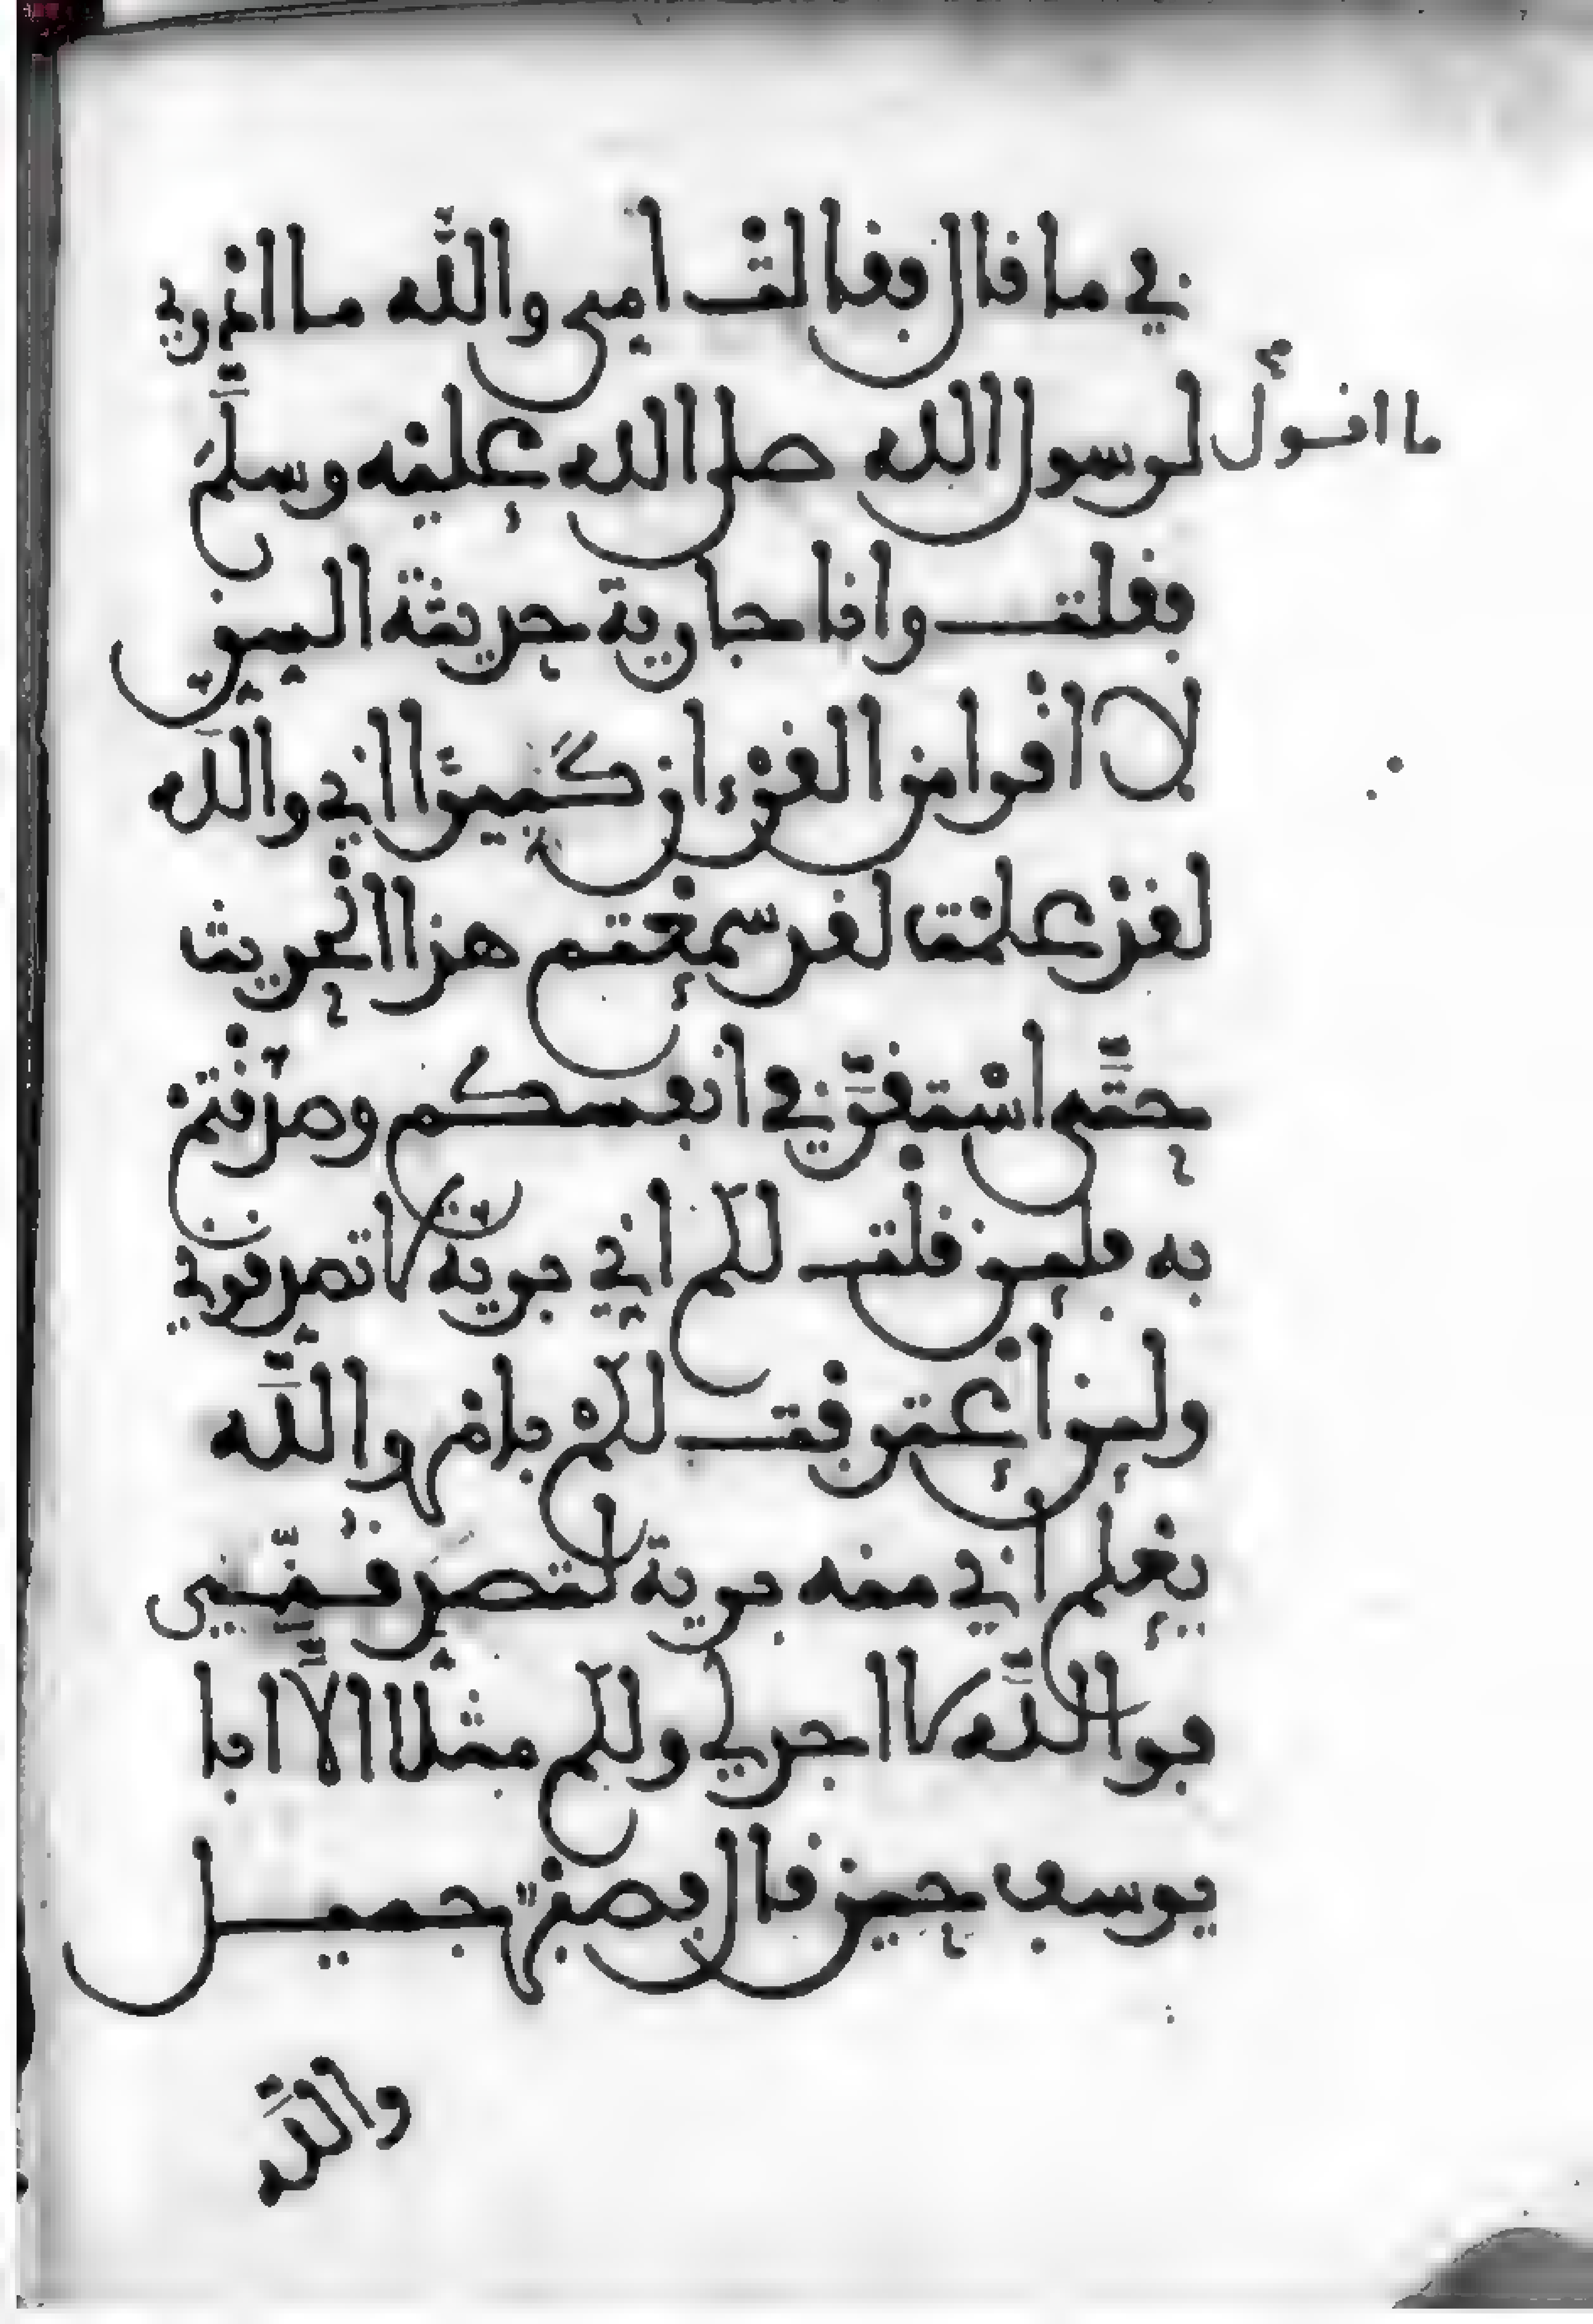 في ما قال فقالت امى والله ما ادري
ما اقول لرسول الله صلى الله عليه وسلم
فقلت وانا جارية حديثة السن
لا اقرا من القرءان كثيرا اني والله
لقد علمت لقد سمعتم هذا الحديث
حتى استقر في انفسكم وصدقتم
به فلين قلت لكم اني برية لا تصدقوني
ولين اعترفت لكم بامر والله
يعلم اني منه برية لتصدقنى
فوالله لا اجد لي ولكم مثلا الا ابا
يوسف حين قال فصبر جميل
والله